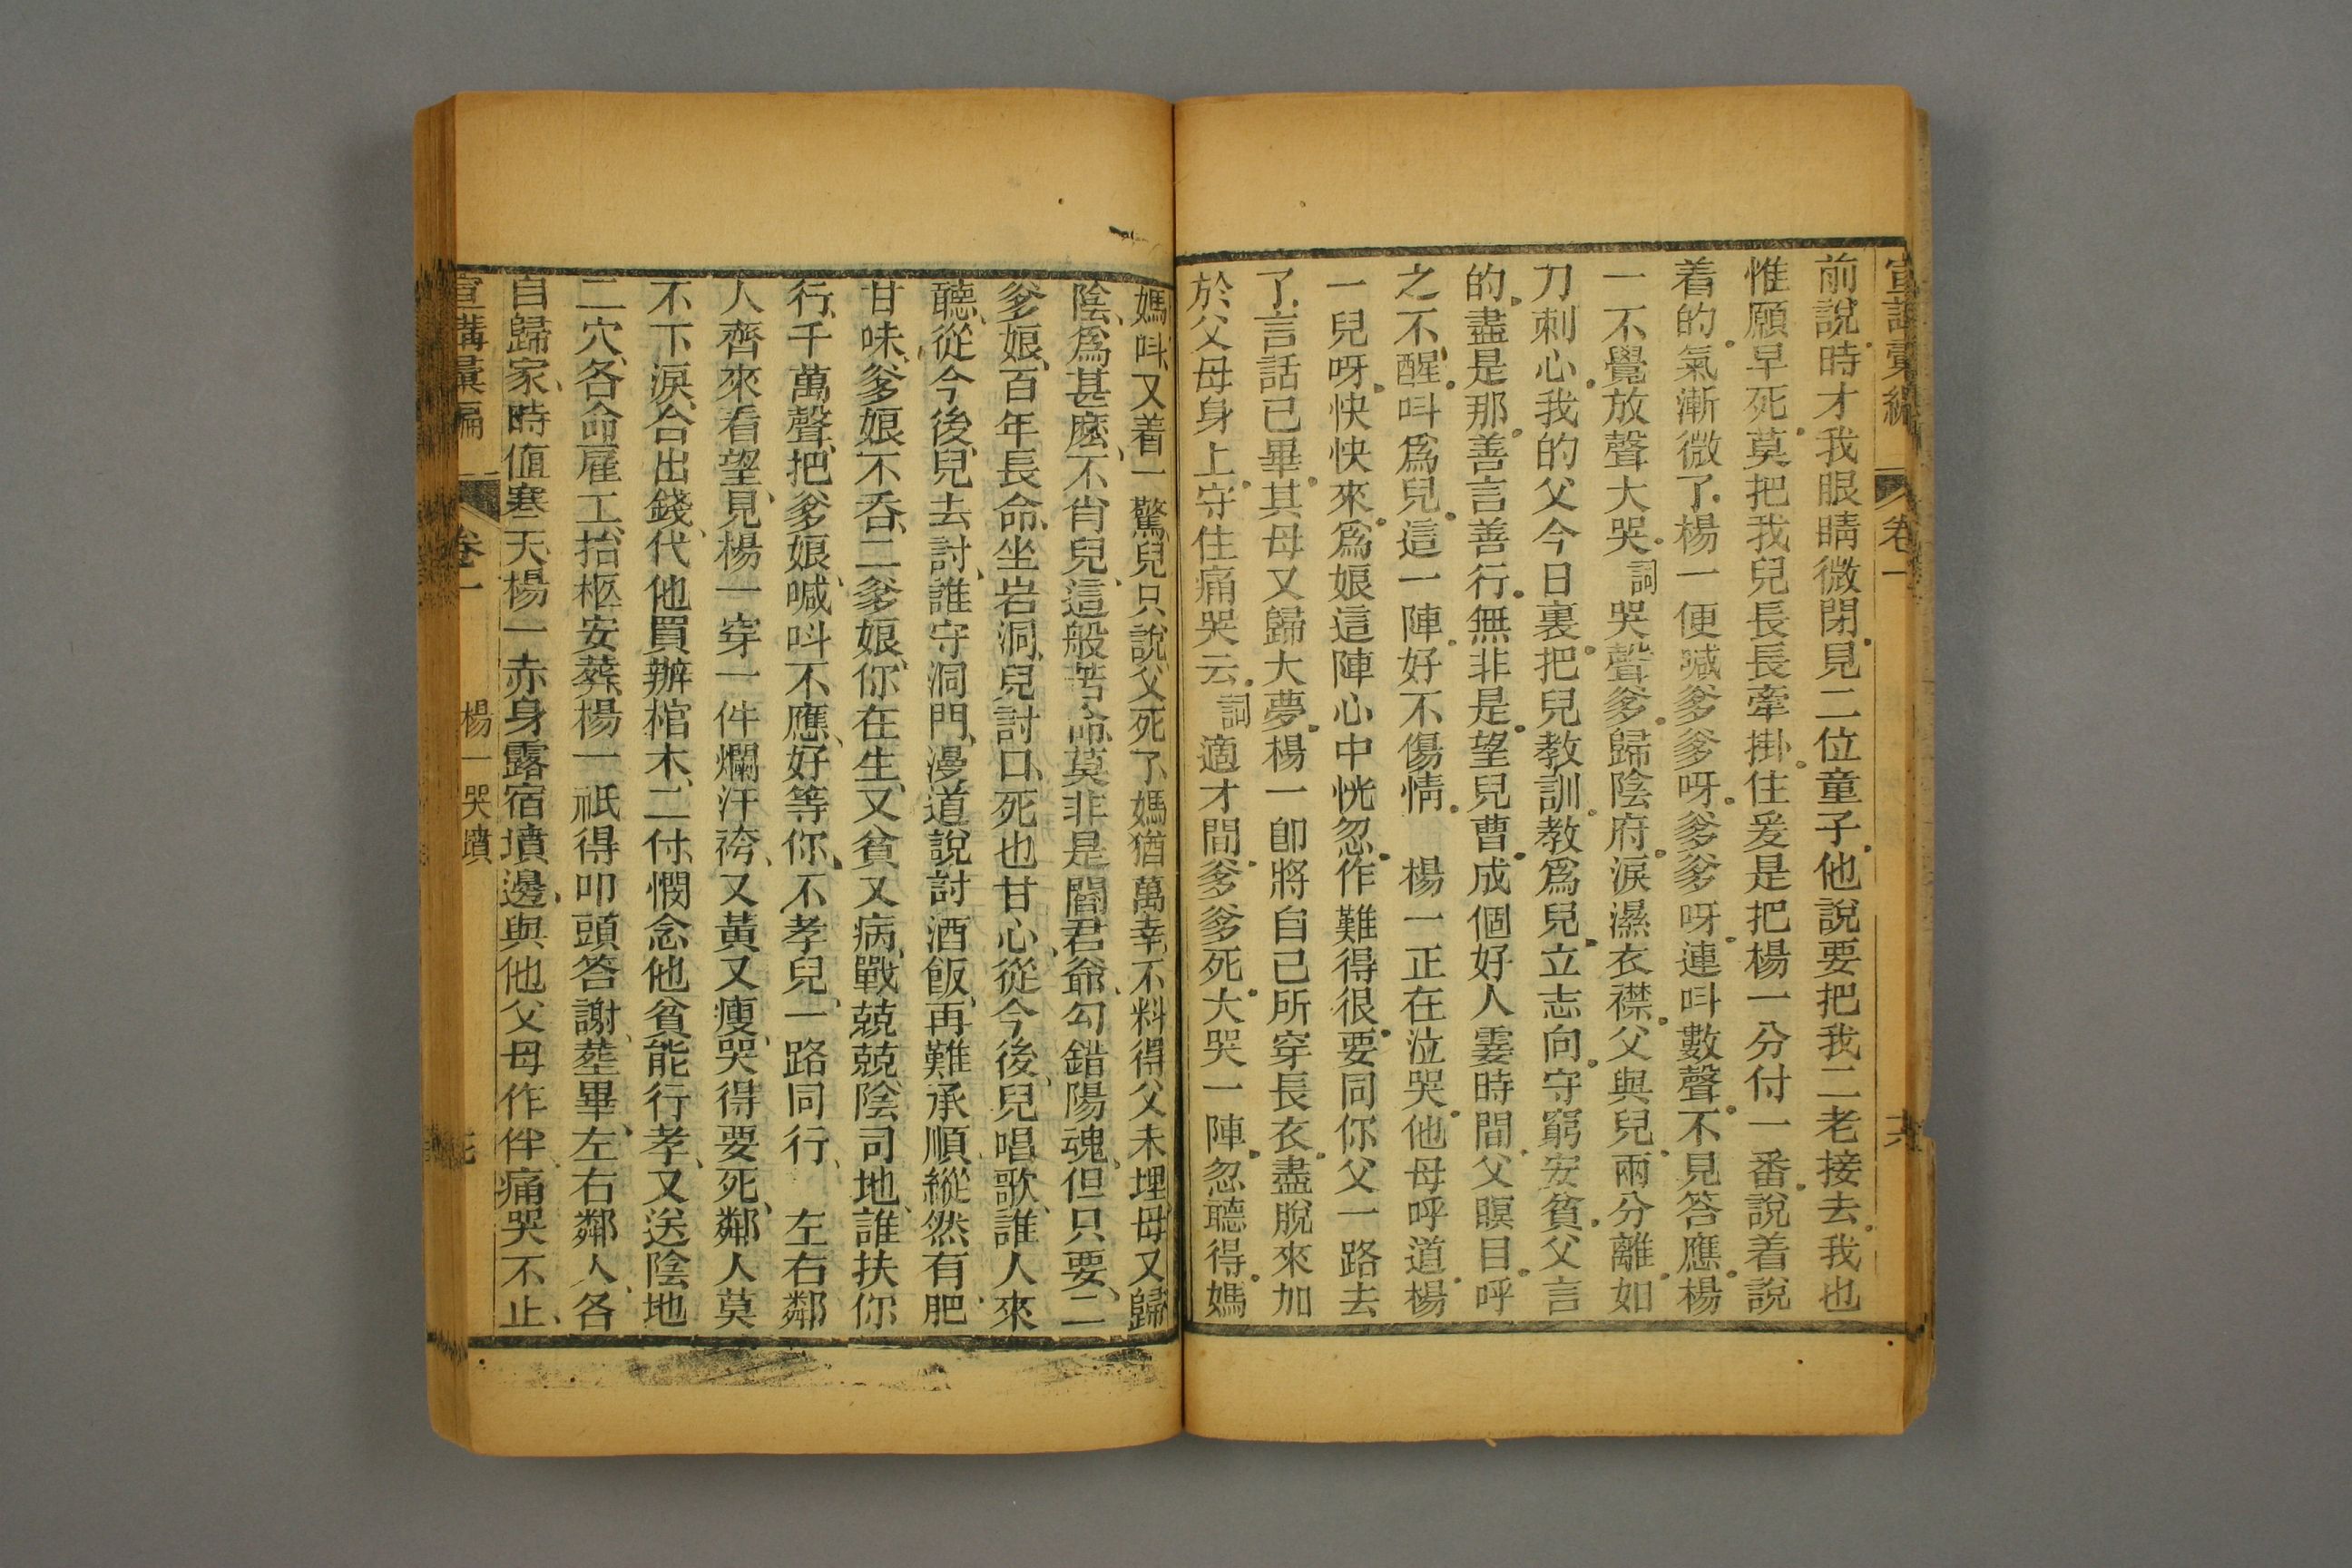 宣講彙編 卷一 六
前說。時才我眼睛微閉。見二位童子。他說要把我二老接去。我也
惟願早死。莫把我兒長長牽掛。住爰是把楊一分付一番。說着說
着的。氣漸微了。楊一便喊爹爹呀。爹爹呀。連呌數聲。不見答應。楊
一不覺放聲大哭。詞哭聲爹。歸陰府。淚濕衣襟。父與兒。兩分離。如
刀刺心。我的父今日裏。把兒教訓。教爲兒。立志向。守窮安貧。父言
的。盡是那。善言善行。無非是。望兒曹。成個好人霎時間。父瞑目。呼
之不醒。呌爲兒。這一陣。好不傷情。 楊一正在泣哭。他母呼道。楊
一兒呀。快快來。爲娘這陣心中恍忽。作難得很。要同你父一路去
了。言話已畢。其母又歸大夢。楊一卽將自己所穿長衣。盡脫來加
於父母身上。守住痛哭云。詞適才間。爹爹死。大哭一陣。忽聽得。媽
媽呌、又着一驚、兒只說、父死了、媽猶萬幸、不料得、父未埋、母又歸
陰、爲甚麽、不肖兒、這般苦命、莫非是、閻君爺、勾錯陽魂、但只要、二
爹娘、百年長命、坐岩洞、兒討口、死也甘心、從今後、兒唱歌、誰人來
聽、從今後、兒去討、誰守洞門、漫道說討酒飯、再難承順、縱然有肥
甘味、爹娘不吞、二爹娘、你在生、又貧又病、戰兢兢、陰司地、誰扶你
行、千萬聲、把爹娘、喊呌不應、好等你、不孝兒、一路同行、 左右鄰
人齊來看望、見楊一穿一件爛汗袴、又黃又瘦、哭得要死、鄰人莫
不下淚、合出錢、代他買辦棺木、二付、憫念他貧能行孝、又送陰地
二穴、各命雇工、抬柩安葬、楊一祇得叩頭答謝、塟畢、左右鄰人、各
自歸家、時值寒天、楊一赤身露宿墳邊、與他父母作伴、痛哭不止、
宣講彙編 卷一 楊一哭墳